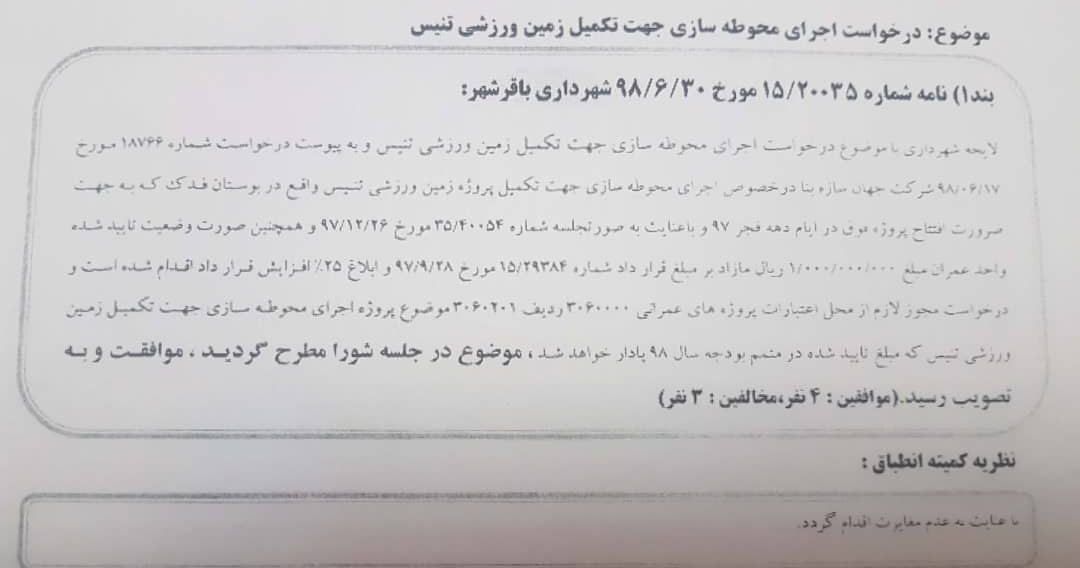 موضوع: درخواست اجرای محوطه سازی جهت تکمیل زمین ورزشی تنیس
بند۱) نامه شماره ۱۵/۲۰۰۳۵ مورخ ۹۸/۶/۳۰ شهرداری باقرشهر:
لایحه شهرداری با موضوع درخواست اجرای محوطه سازی جهت تکمیل زمین ورزشی تنیس و به پیوست درخواست شماره ۱۸۷۶۶ مورخ
۹۸/۰۶/۱۷ شرکت جهان سازه بنا درخصوص اجرای محوطه سازی جهت تکمیل پروژه زمین ورزشی تنیس واقع در بوستان فدک که به جهت
ضرورت افتتاح پروژه فوق در ایام دهه فجر ۹۷ و باعنایت به صورتجلسه شماره ۳۵/۴۰۰۵۴ مورخ ۹۷/۱۲/۲۶ و همچنین صورت وضعیت تایید شده
واحد عمران مبلغ ۱/۰۰۰/۰۰۰/۰۰۰ ریال مازاد بر مبلغ قرار داد شماره ۱۵/۲۹۳۸۴ مورخ ۹۷/۹/۲۸ و ابلاغ ۲۵٪ افزایش قرار داد اقدام شده است و
درخواست مجوز لازم از محل اعتبارات پروژه های عمرانی ۳۰۶۰۰۰۰ ردیف ۳۰۶۰۲۰۱ موضوع پروژه اجرای محوطه سازی جهت تکمیل زمین
ورزشی تنیس که مبلغ تایید شده در متمم بودجه سال ۹۸ پادار خواهد شد، موضوع در جلسه شورا مطرح گردید، موافقت و به
تصویب رسید.(موافقین : ۴ نفر،مخالفین : ۳ نفر)
نظریه کمیته انطباق :
با عنایت به عدم مغایرت اقدام گردد.